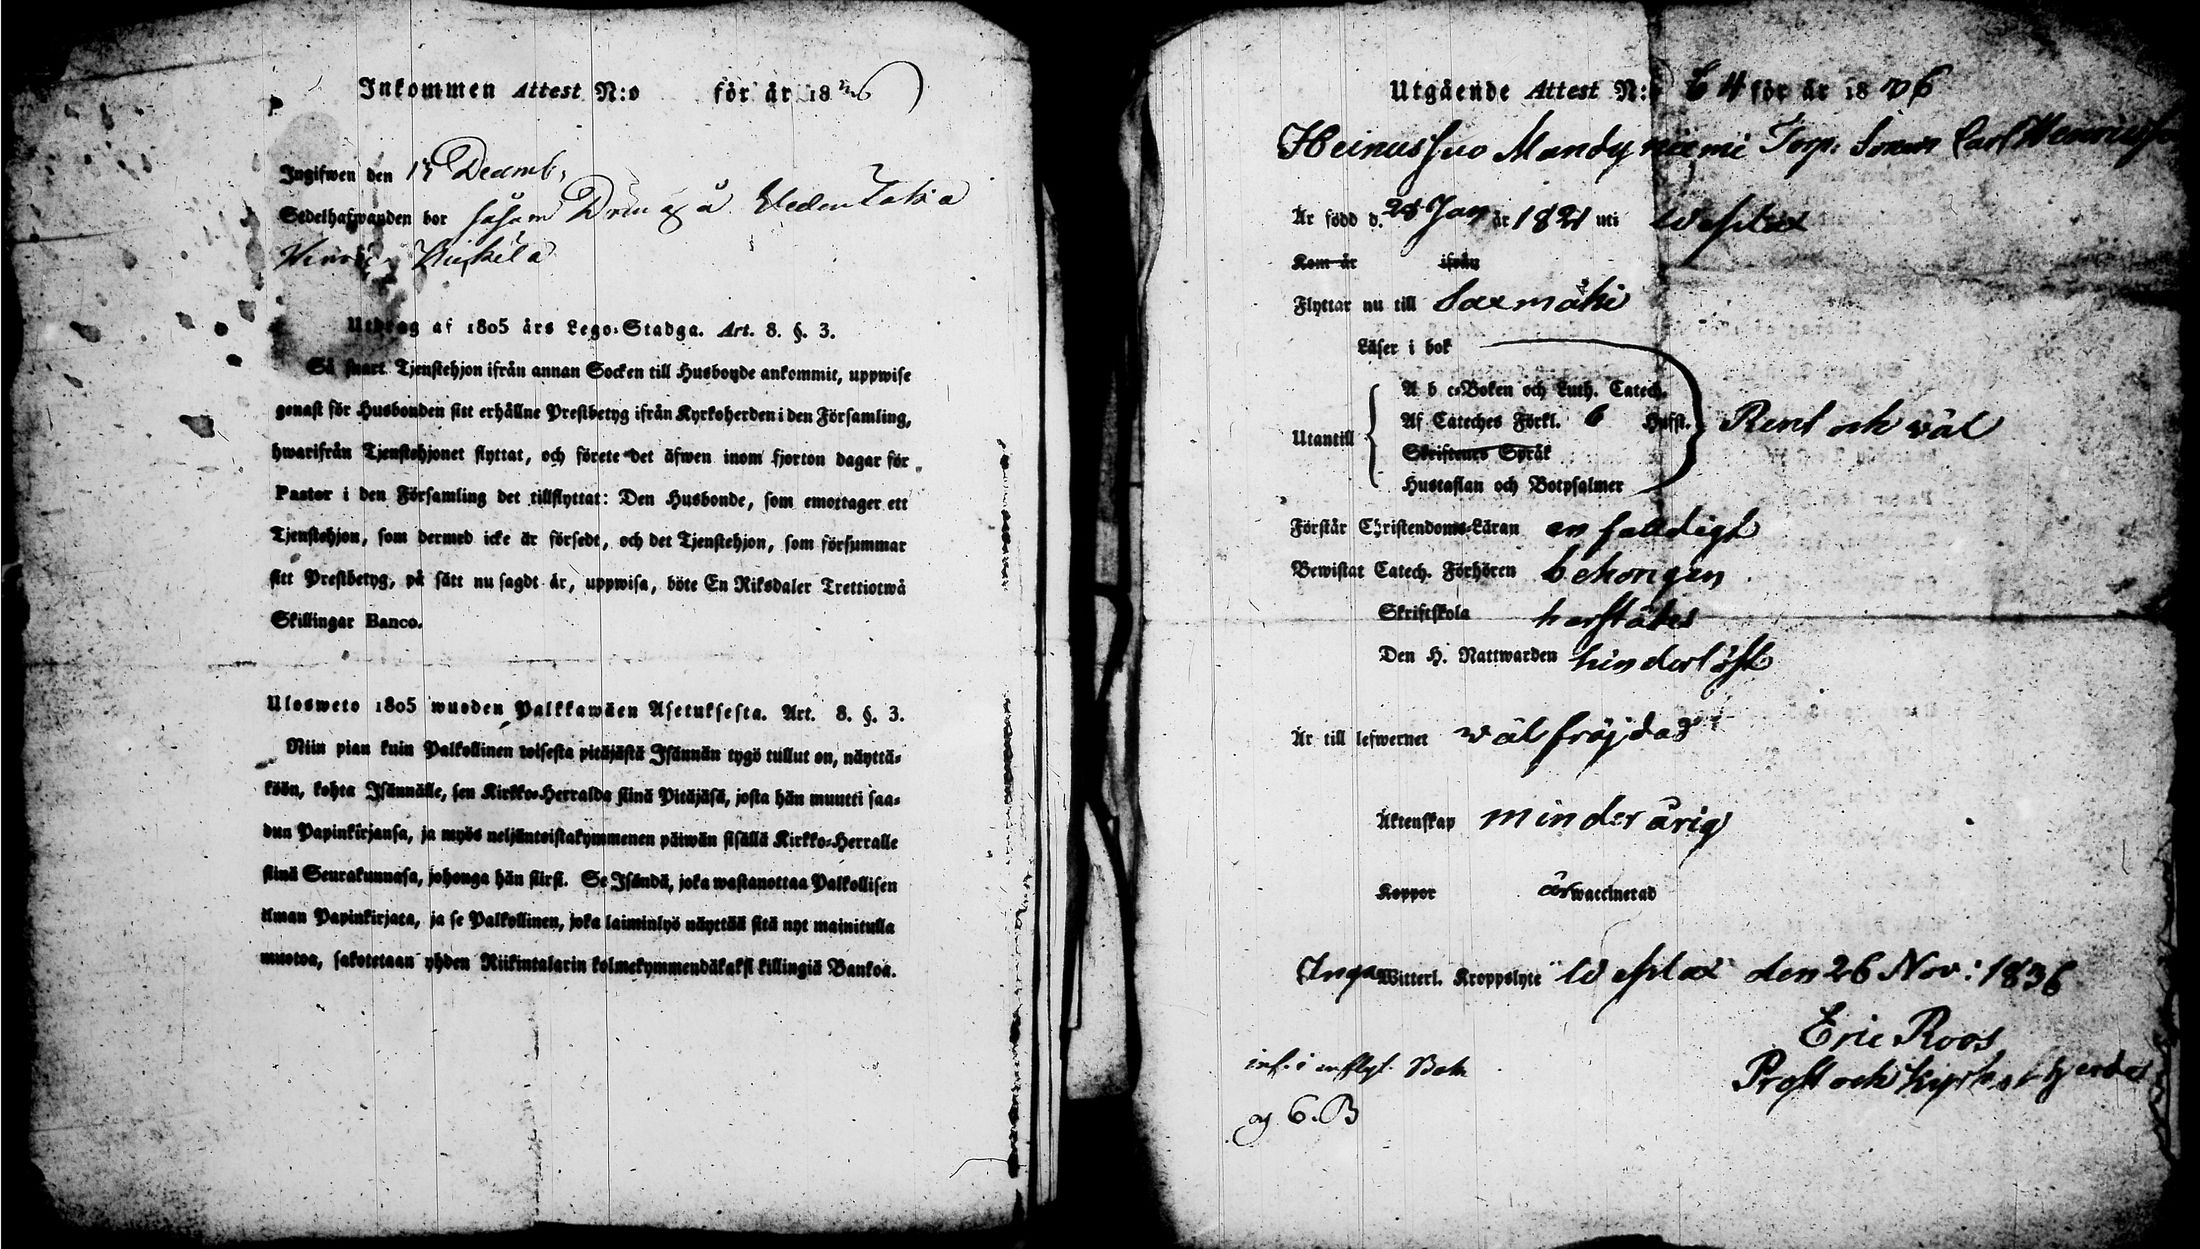 Inkommen Attest N:o för år 18
Ingifwen den 15 Decemb.
Sedelhafwanden bor såsom Dräng å
Utdrag af 1805 års Lego-Stadga. Art. 8. §. 3.
Så snart Tjenstehjon ifrån annan Socken till Husbonde ankommit, uppwise
genast för Husbonden sitt erhållne Prestbetyg ifrån Kyrkoherden i den Församling,
hwarifrån Tjenstehjonet flyttat, och förete det äfwen inom fjorton dagar för
Pastor i den Församling det tillflyttat: Den Husbonde, som emottager ett
Tjenstehjon, som dermed icke är försedt, och det Tjenstehjon, som försummar
sitt Prestbetyg, på sätt nu sagdt är, uppwisa, böte En Riksdaler Trettiotwå
Skillingar Banco.
Ulosweto 1805 wuoden Palkkawäen Asetuksesta. Art. 8. §. 3.
Niin pian kuin Palkollinen toisesta pitäjästä Isännän tygö tullut on, näyttä-
köön, kohta Isännälle, sen Kirkko-Herralda siinä Pitäjäsä, josta hän muutti saa-
dun Papinkirjansa, ja myös neljäntoistakymmenen päiwän sisällä Kirkko-Herralle
siinä Seurakunnasa, johonga hän siirsi. Se Isändä, joka wastanottaa Palkollisen
ilman Papinkirjata, ja se Palkollinen, joka laiminlyö näyttää sitä nyt mainitulla
muotoa, sakotetaan yhden Riikintalarin kolmekymmendäkaksi killingiä Bankoa.
Utgående Attest N:o 64 för år 1836
Heinussuo Mandyniemi Torp. Sonen Carl Henricsson
Är född d. 28 Jan år 1821 uti Wesilax
Kom år ifrån
Flyttar nu till Saxmäki
Läser i bok
A b c-Boken och Luth. Catech.
Af Cateches Förkl. 6 Hufst. Rent och väl
Utantill
Skriftenes Språk
Hustaflan och Botpsalmer
Förstår Christendoms-Läran enfalldigt
Bewistat Catech. Förhören behörigen
Skriftskola
Den H. Nattwarden hinderlöst
Är till lefwernet wälfröjdad
Äktenskap minderårig
Koppor är waccinerad
Inga Witterl. Kroppslyte Wesilax den 26 Nov: 1836
Eric Roos
Prost och Kyrkoherde
inf. i inflyt. Bok